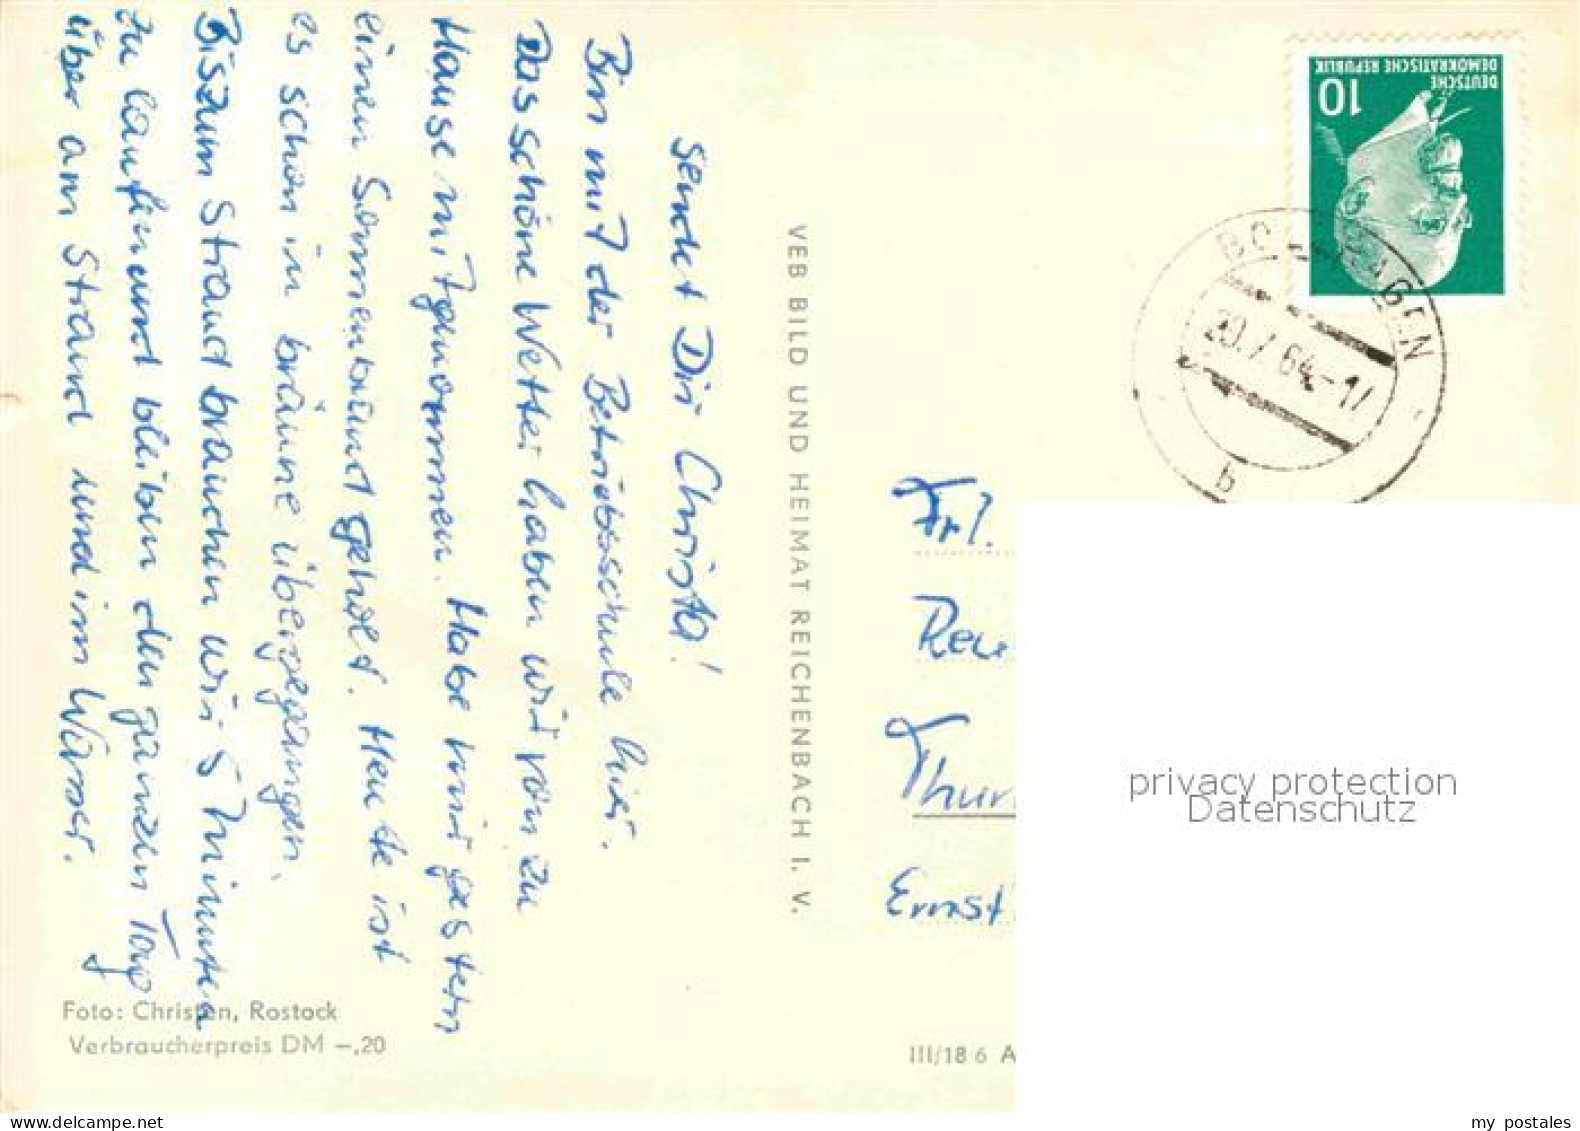 sendet Dir Christa!
Bin mit der Betriebsschule hier.
Das schöne Wetter haben wir von zu
Hause mitgenommen. Habe mir gestern
einen Sonnenbrand geholt. Heute ist
es schon in bräune übergegangen.
Bis zum Strand brauchen wir 5 Minuten
zu laufen und bleiben den ganzen Tag
über am Strand und im Wasser.
VEB BILD UND HEIMAT REICHENBACH I. V.
Foto: Christen, Rostock
Verbraucherpreis DM –,20
III/18 6 A
DEUTSCHE
DEMOKRATISCHE REPUBLIK
10
20.7.64-17
b
Frl.
Ernst
privacy protection
Datenschutz
my postales
www.delcampe.net